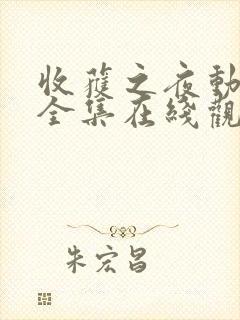 收穫之夜動
全集在綫觀
朱宏昌